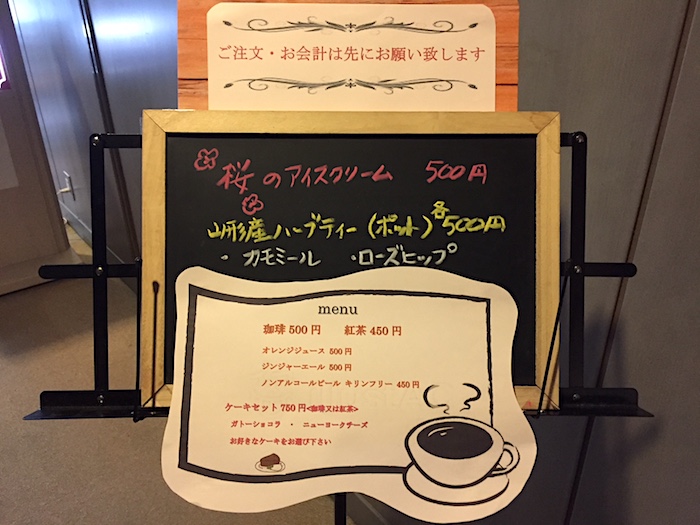 ご注文・お会計は先にお願い致します
桜のアイスクリーム 500円
山形産ハーブティー(ポット)各500円
・カモミール ・ローズヒップ
menu
珈琲 500円 紅茶 450円
オレンジジュース 500円
ジンジャーエール 500円
ノンアルコールビール キリンフリー 450円
ケーキセット 750円<珈琲又は紅茶>
ガトーショコラ ・ ニューヨークチーズ
お好きなケーキをお選び下さい